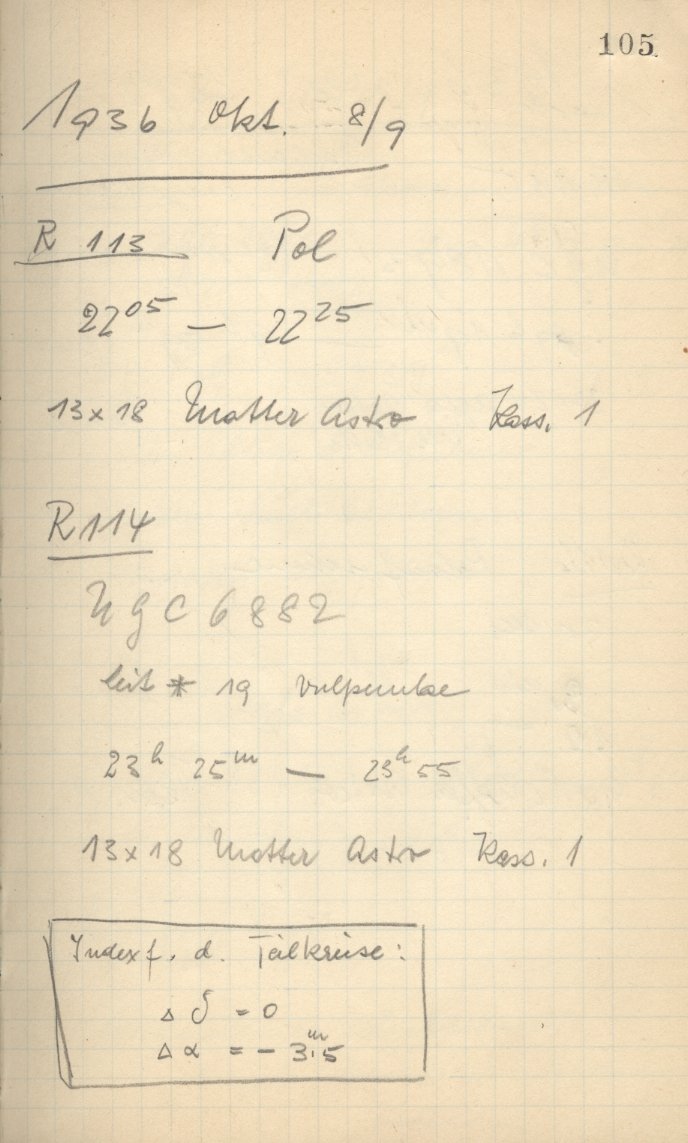 105
1936 Okt. 8/9
R 113 Pol
22⁰⁵ — 22²⁵
13x18 Matter Astro Kass. 1
R114
NGC 6882
leit * 19 Vulpeculae
23ʰ 25ᵐ — 23ʰ 55
13x18 Matter Astro Kass. 1
Indexf. d. Teilkreise:
Δ δ = 0
Δ α = - 3ᵐ.5